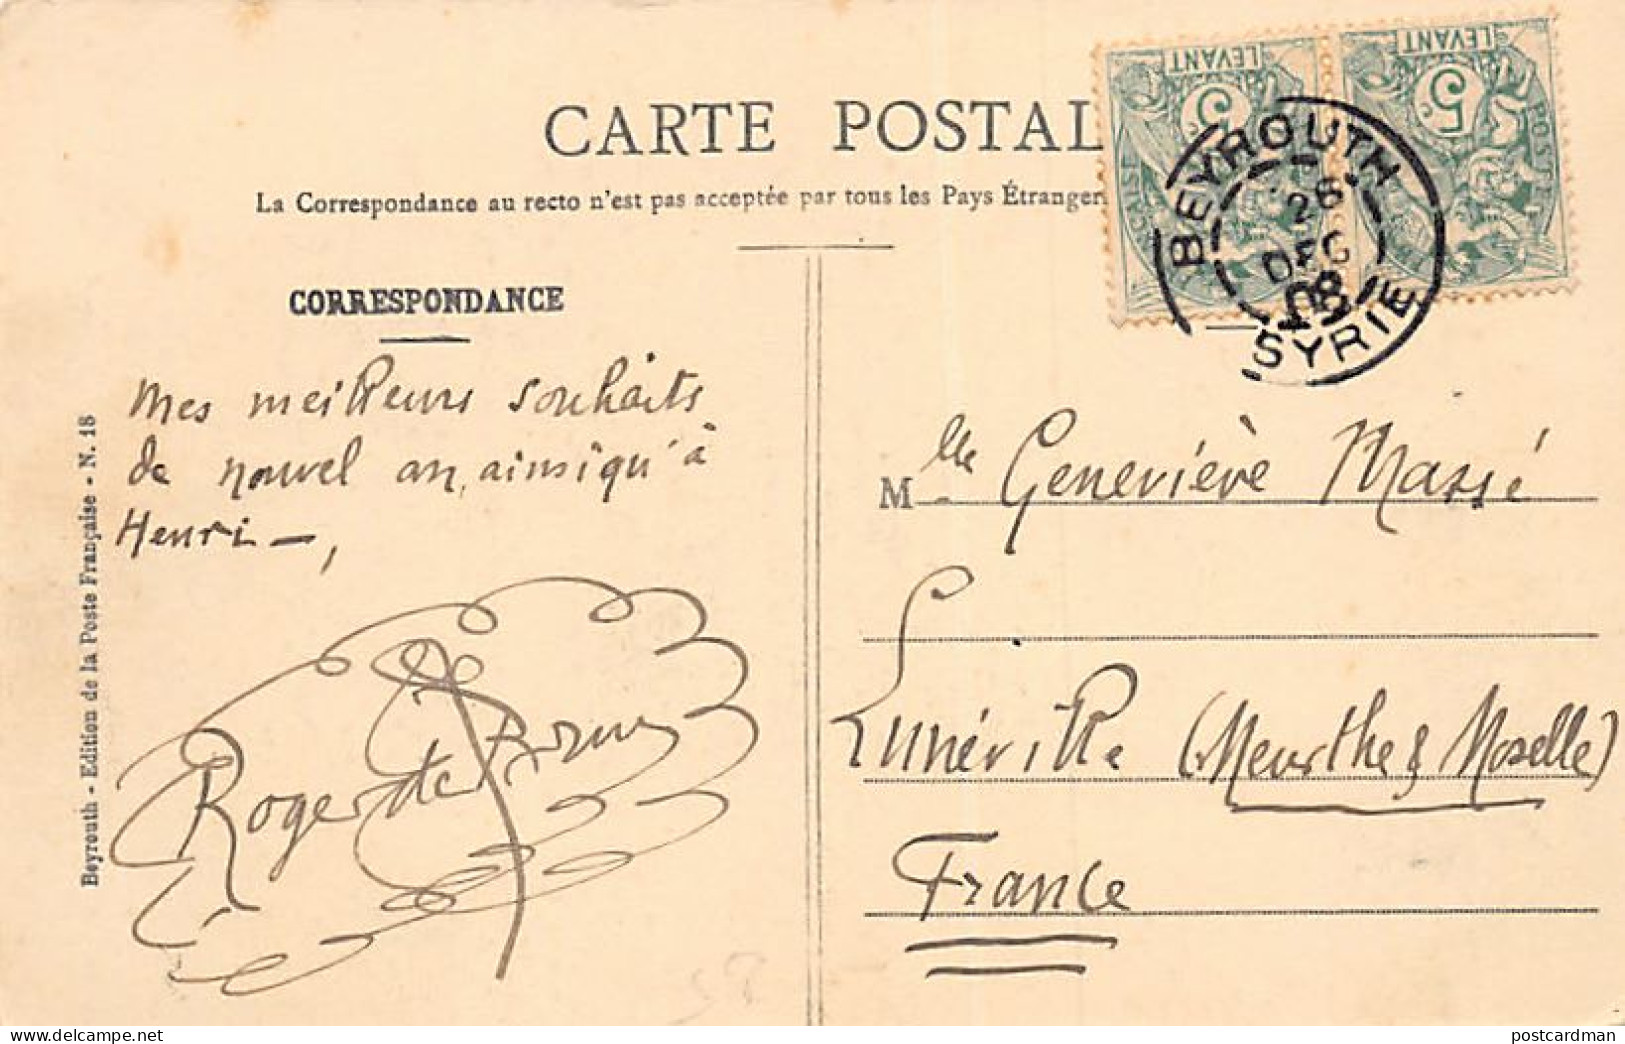 CARTE POSTAL
La Correspondance au recto n'est pas acceptée par tous les Pays Étranger
LEVANT
5
LEVANT
5c
POSTE
BEYROUTH
26
DEC
08
SYRIE
CORRESPONDANCE
Mes meilleurs souhaits
de nouvel an, ainsi qu'à
Henri —,
Roger de
Beyrouth - Edition de la Poste Française - N. 18
Mlle Geneviève Massé
Lunéville (Meurthe & Moselle)
France
delcampe.net
postcardman